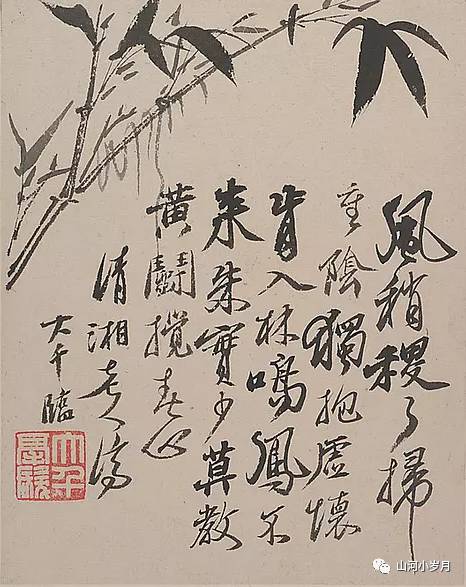 風梢稷々掃
重陰獨抱虛懷
肯入林鳴鳳不
來朱實少莫教
黃鬭攪春心
清湘老人濟
大千臨
大千
山河小岁月